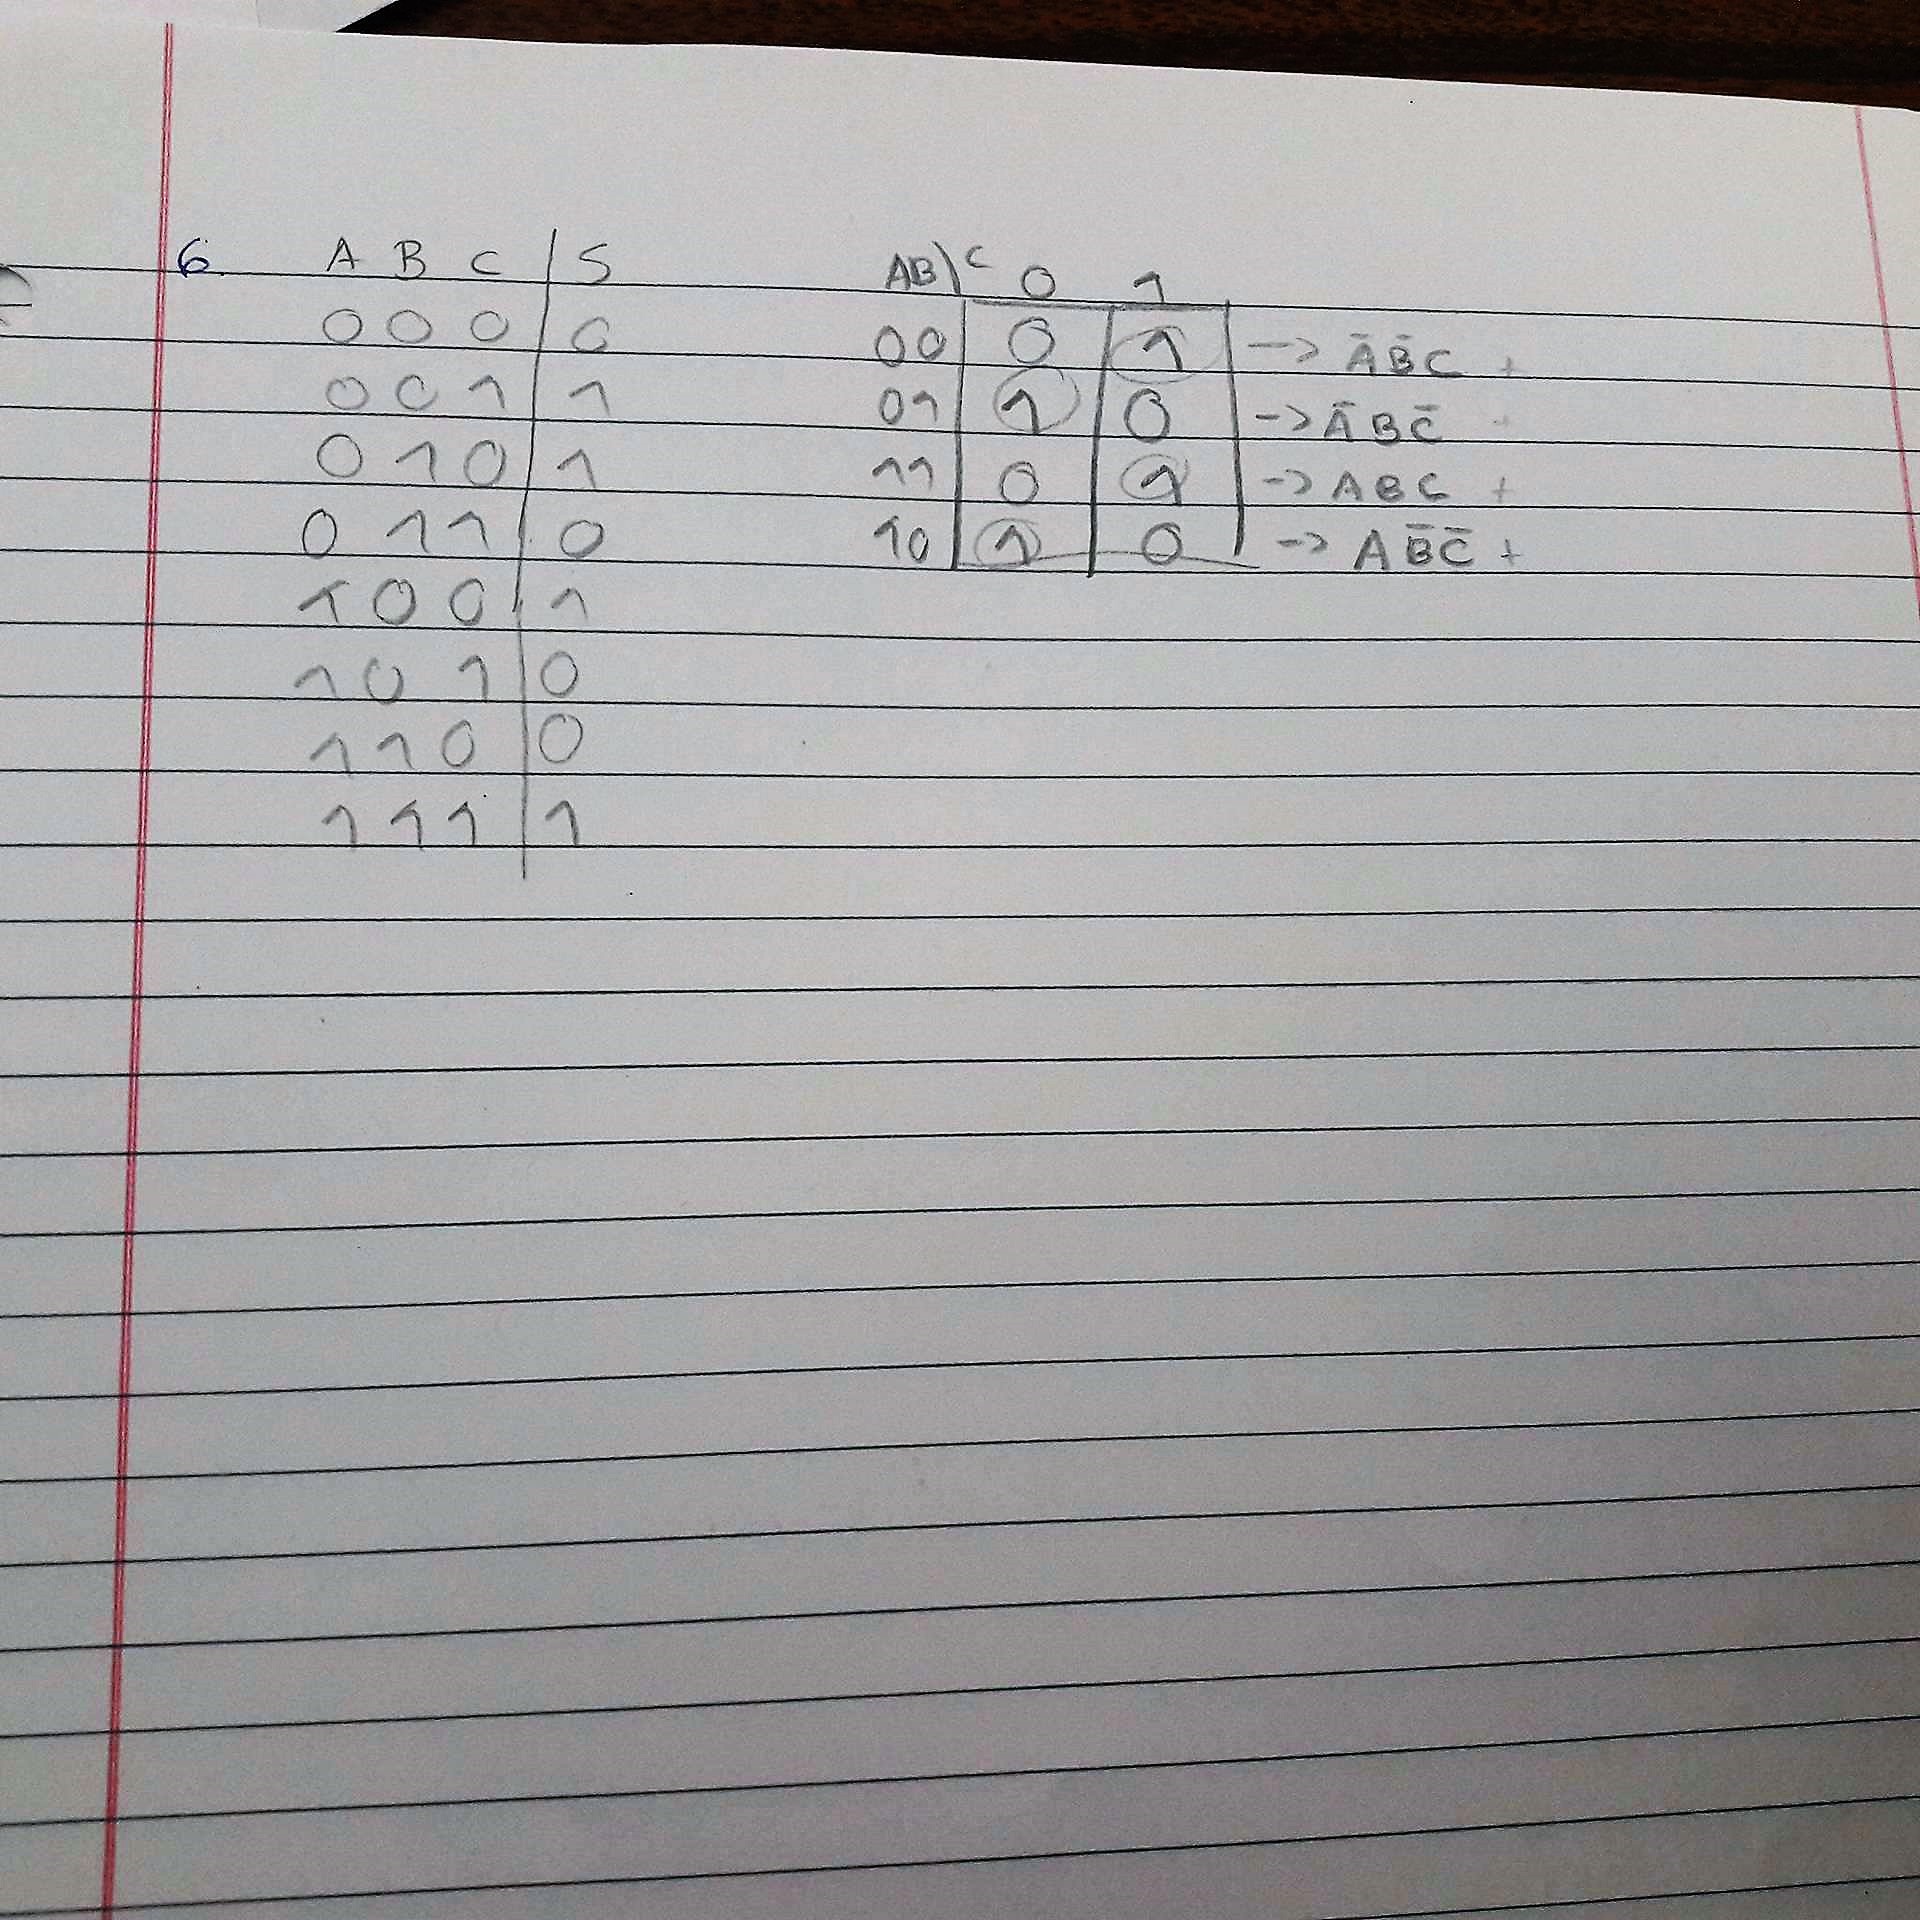 6. A B C | S
0 0 0 | 0
0 0 1 | 1
0 1 0 | 1
0 1 1 | 0
1 0 0 | 1
1 0 1 | 0
1 1 0 | 0
1 1 1 | 1
AB\C 0 1
00 | 0 | 1 | -> A̅ B̅ C +
01 | 1 | 0 | -> A̅ B C̅ +
11 | 0 | 1 | -> A B C +
10 | 1 | 0 | -> A B̅ C̅ +